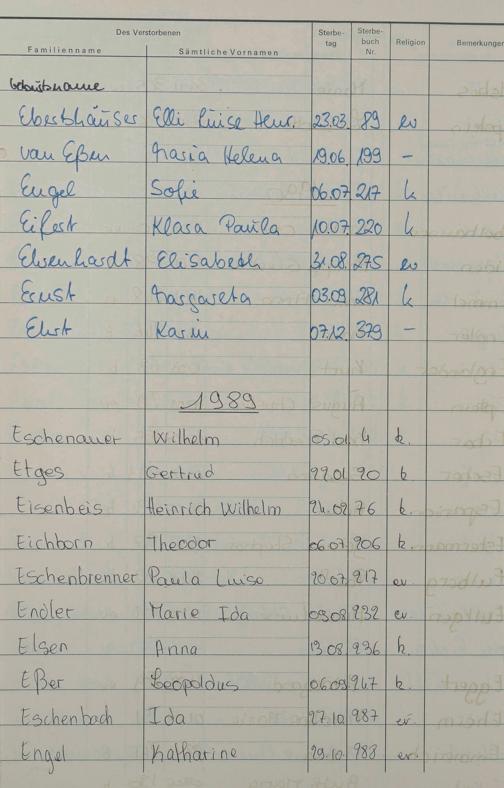 Des Verstorbenen
Familienname Sämtliche Vornamen Sterbe-tag Sterbe-buch Nr. Religion Bemerkungen
Geburtsname
Ebertshäuser Elli Luise Henr. 23.03. 89 ev
van Eßen Maria Helena 19.06. 199 –
Engel Sofie 06.07 217 k
Eifert Klara Paula 10.07 220 k
Elsenhardt Elisabeth 31.08. 275 ev
Ernst Margareta 03.09 281 k
Karin 07.12. 379 –
1989
Eschenauer Wilhelm 05.01 4 k.
Etges Gertrud 22.01 20 k
Eisenbeis Heinrich Wilhelm 24.02 76 k.
Eichborn Theodor 06.07 206 k.
Eschenbrenner Paula Luise 20.07 217 ev
Endler Marie Ida 09.08 232 ev
Elsen Anna 13.08 236 k.
Eßer Leopoldus 06.09 247 k.
Eschenbach Ida 27.10 287 ev.
Engel Katharine 29.10 288 ev.